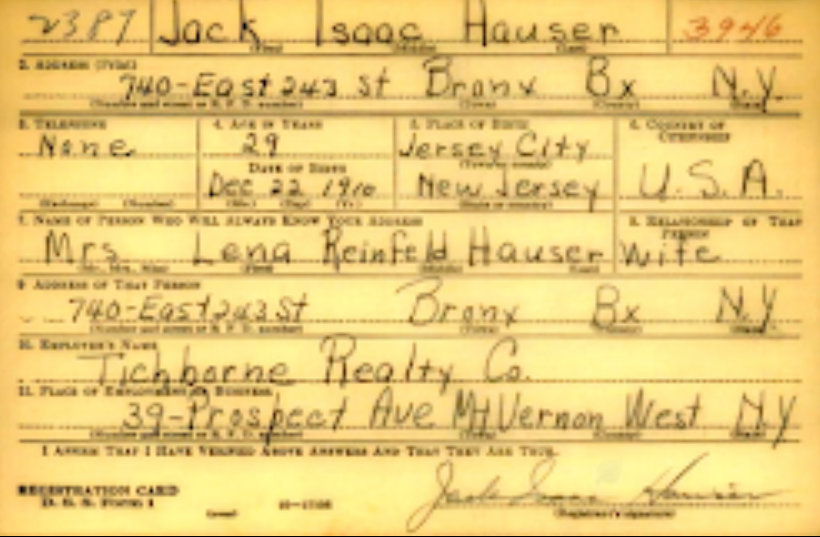 2387 Jack Isaac Hauser 3946
(First) (Middle) (Last)
2. ADDRESS (Print)
740-East 243 St Bronx Bx N.Y.
(Number and street or R. F. D. number) (Town) (County) (State)
3. TELEPHONE 4. AGE IN YEARS 5. PLACE OF BIRTH 6. COUNTRY OF
CITIZENSHIP
None 29 Jersey City
(Town or county)
DATE OF BIRTH
Dec 22 1910 New Jersey U.S.A.
(Exchange) (Number) (Mo.) (Day) (Yr.) (State or country)
7. NAME OF PERSON WHO WILL ALWAYS KNOW YOUR ADDRESS 8. RELATIONSHIP OF THAT
PERSON
Mrs Lena Reinfeld Hauser Wife
(Mr., Mrs., Miss) (First) (Middle) (Last)
9. ADDRESS OF THAT PERSON
740-East 243 St Bronx Bx N.Y
(Number and street or R. F. D. number) (Town) (County) (State)
10. EMPLOYER'S NAME
Tichborne Realty Co.
11. PLACE OF EMPLOYMENT OR BUSINESS
39-Prospect Ave Mt Vernon West N.Y
(Number and street or R. F. D. number) (Town) (County) (State)
I AFFIRM THAT I HAVE VERIFIED ABOVE ANSWERS AND THAT THEY ARE TRUE.
REGISTRATION CARD
D. S. S. Form 1
(over)
Jack Isaac Hauser
(Registrant's signature)